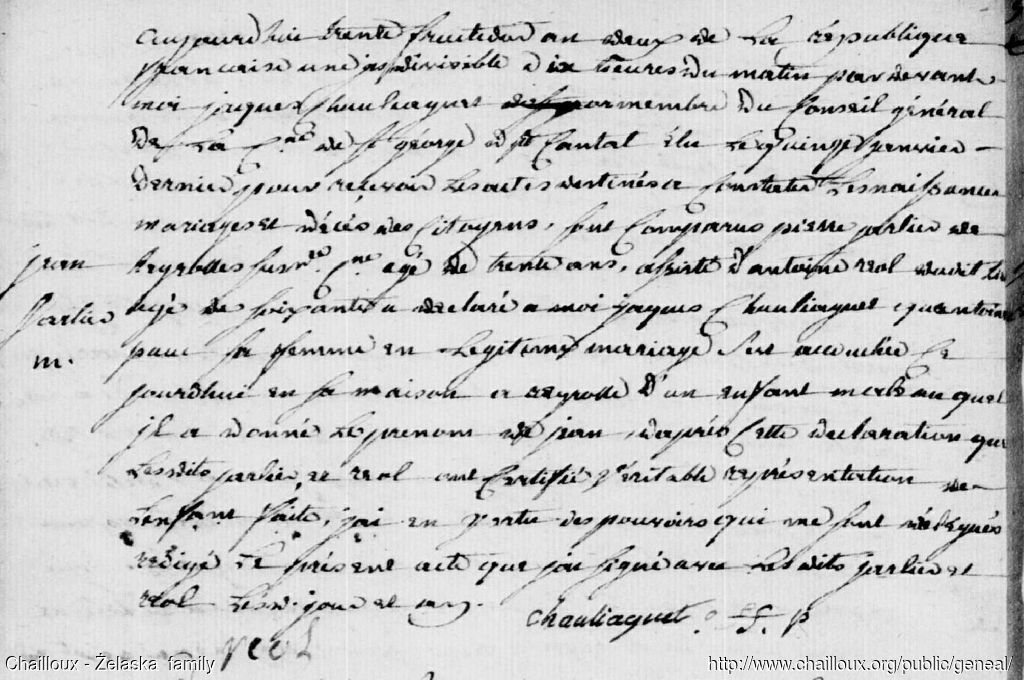 aujourdhui trente fructidor an deux de la république
francaise une indivisible a dix heures du matin par devant
moi jaques Chauliaguet membre du Conseil général
de la Cne de st géorge dpt Cantal élu le quinze janvier
dernier pour recevoir les actes destinés a Constater les naissances
mariages et décés des Citoyens, sont Comparus pierre jarlier de
susne. Cne agé de trente ans, assisté d'antoine rol dudit lieu
agé de soixante a declaré a moi jaques Chauliaguet que antoinete
sa femme en légitime mariage est accouchée Ce
jourdhui en sa maison a reyrolle d'un enfant male auquel
jl a donné le prenom de jean, daprés Cette declaration que
lesdits jarlier et rol ont Certifié véritable représentation de
lenfant faite, jai en vertu des pouvoirs qui me sont délégués
redigé le présent acte que jai signé avec lesdits jarlier et
rol lesd. jour et an.
Chauliaguet o. ff. p
reol
jean
jarlier
m.
Chailloux - Żelaska family
http://www.chailloux.org/public/geneal/